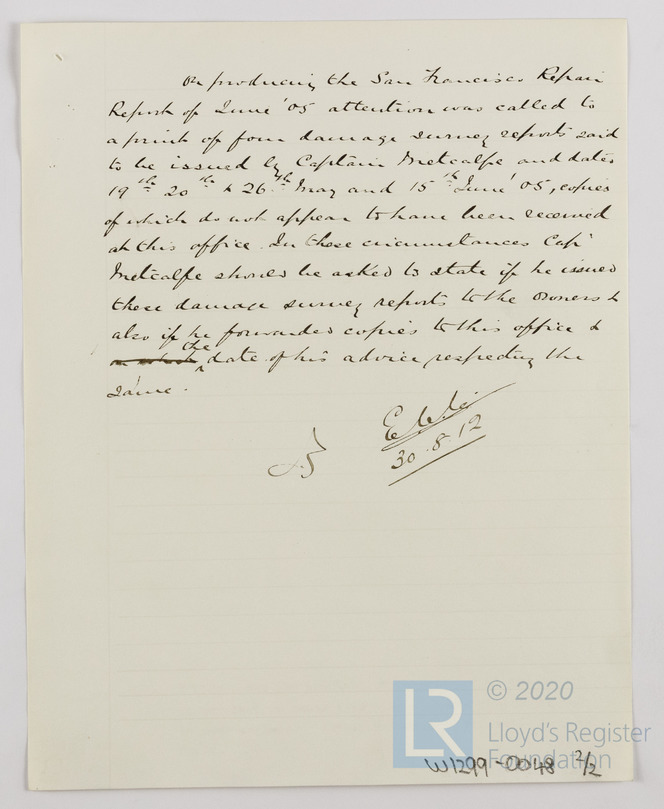 On producing the San Francisco Repair
Report of June '05 attention was called to
a print of four damage survey reports said
to be issued by Captain Metcalfe and dated
19th 20th & 26th May and 15th June '05, copies
of which do not appear to have been received
at this office. In these circumstances Capt
Metcalfe should be asked to state if he issued
these damage survey reports to the Owners &
also if he forwarded copies to this office &
the date of his advice respecting the
same.
30.8.12
© 2020
LR
Lloyd's Register
Foundation
W1299-0048 2/2